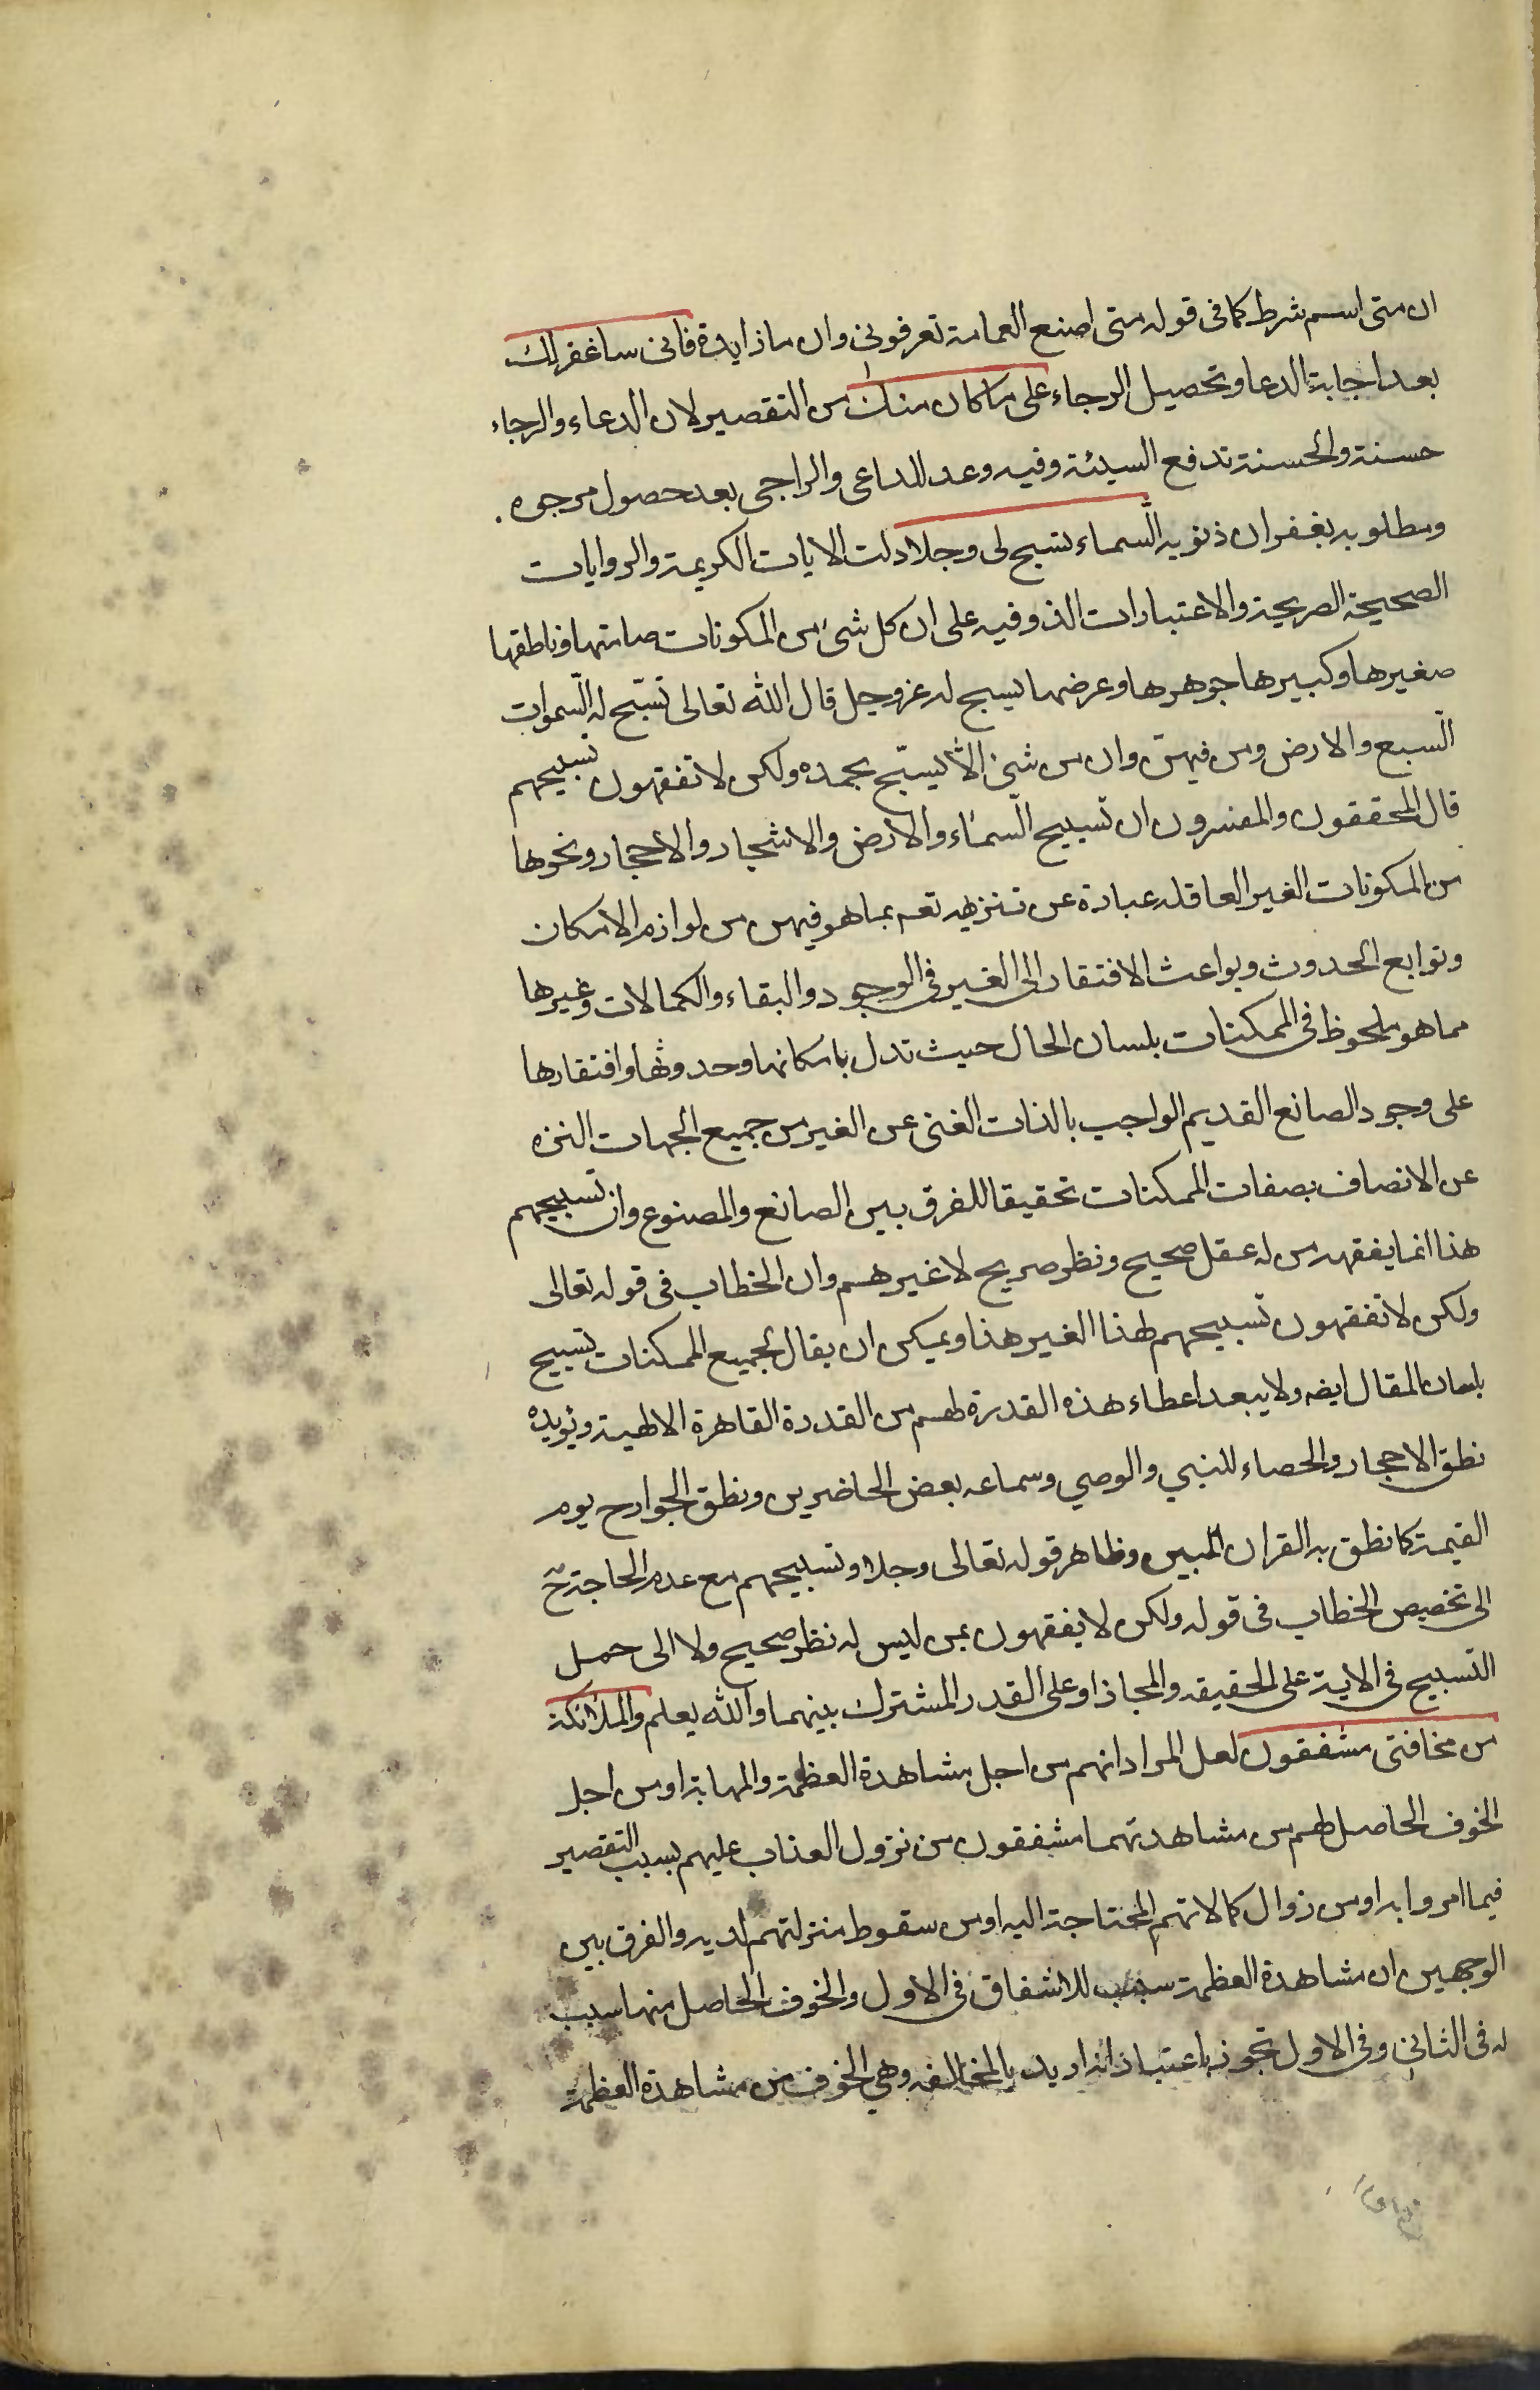 ان متى اسم شرط كما فى قوله متى اصنع العمامة تعرفونى وان ما زايدة فانى ساغفر لك
بعد اجابة الدعا وتحصيل الرجاء على ما كان منك من التقصير لان الدعاء والرجاء
حسنة والحسنة تدفع السيئة وفيه وعد للداعى والراجى بعد حصول مرجوه .
ومطلوبه بغفران ذنوبه السّماء تسبح لى وجلا دلت الايات الكريمة والروايات
الصحيحة الصريحة والاعتبارات الذوقيه على ان كل شىء من المكونات صامتها وناطقها
صغيرها وكبيرها جوهرها وعرضها يسبح له عز وجل قال الله تعالى تسبّح له السّموات
السّبع والارض ومن فيهنّ وان من شئ الا يسبّح بحمده ولكن لا تفقهون تسبيحهم
قال المحققون والمفسرون ان تسبيح السّماء والارض والاشجار والاحجار ونحوها
من المكونات الغير العاقله عبارة عن تنزيهه تعه بما هو فيهن من لوازم الامكان
وتوابع الحدوث وبواعث الافتقار الى الغير فى الوجود والبقاء والكمالات وغيرها
مما هو ملحوظ فى الممكنات بلسان الحال حيث تدل بامكانها وحدوثها وافتقارها
على وجود الصانع القديم الواجب بالذات الغنى عن الغير من جميع الجهات النزه
عن الاتصاف بصفات الممكنات تحقيقا للفرق بين الصانع والمصنوع وان تسبيحهم
هذا انما يفقهه من له عقل صحيح ونظر صريح لا غيرهم وان الخطاب فى قوله تعالى
ولكن لا تفقهون تسبيحهم لهذا الغير هذا ويمكن ان يقال لجميع الممكنات تسبيح
بلسان المقال ايضه ولا يبعد اعطاء هذه القدرة لهم من القدرة القاهرة الالهية ويؤيده
نطق الاحجار والحصاء للنبي والوصي وسماعه بعض الحاضرين ونطق الجوارح يوم
القيمة كما نطق به القران المبين وظاهر قوله تعالى وجلا وتسبيحهم مع عدم الحاجة ح
الى تخصيص الخطاب فى قوله ولكن لا يفقهون بمن ليس له نظر صحيح ولا الى حمل
التسبيح فى الاية على الحقيقه والمجاز او على القدر المشترك بينهما والله يعلم والملائكة
من مخافتى مشفقون لعل المراد انهم من اجل مشاهدة العظمة والمهابة او من اجل
الخوف الحاصل لهم من مشاهدتهما مشفقون من نزول العذاب عليهم بسبب التقصير
فيما امروا به او من زوال كمالاتهم المحتاجة اليه او من سقوط منزلتهم لديه والفرق بين
الوجهين ان مشاهدة العظمة سبب للاشفاق فى الاول والخوف الحاصل منها سبب
له فى الثانى وفى الاول تجوز باعتبار انه اريد بالمخالفه وهي الخوف من مشاهدة العظمة